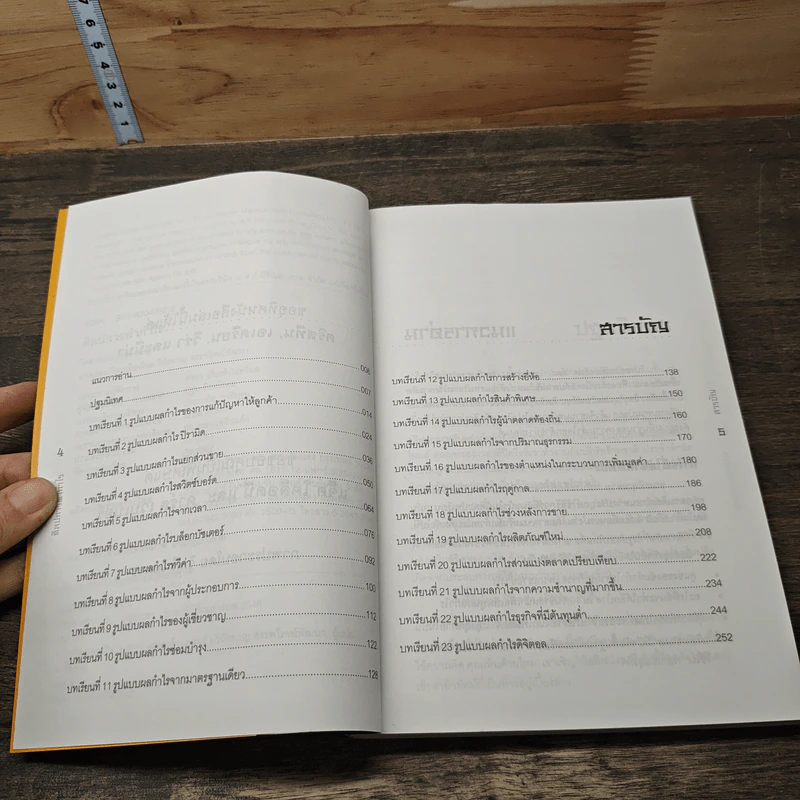 7 6 5 4 3 2 1
แนวการอ่าน 006
ปฐมนิเทศ 007
บทเรียนที่ 1 รูปแบบผลกำไรของการแก้ปัญหาให้ลูกค้า 014
บทเรียนที่ 2 รูปแบบผลกำไร ปิรามิด 024
บทเรียนที่ 3 รูปแบบผลกำไรแยกส่วนขาย 036
บทเรียนที่ 4 รูปแบบผลกำไรสวิตช์บอร์ด 050
บทเรียนที่ 5 รูปแบบผลกำไรจากเวลา 064
บทเรียนที่ 6 รูปแบบผลกำไรบล็อกบัซเตอร์ 076
บทเรียนที่ 7 รูปแบบผลกำไรทวีค่า 092
บทเรียนที่ 8 รูปแบบผลกำไรจากผู้ประกอบการ 100
บทเรียนที่ 9 รูปแบบผลกำไรของผู้เชี่ยวชาญ 112
บทเรียนที่ 10 รูปแบบผลกำไรซ่อมบำรุง 122
บทเรียนที่ 11 รูปแบบผลกำไรจากมาตรฐานเดียว 128
4
สารบัญ
บทเรียนที่ 12 รูปแบบผลกำไรการสร้างยี่ห้อ 138
บทเรียนที่ 13 รูปแบบผลกำไรสินค้าพิเศษ 150
บทเรียนที่ 14 รูปแบบผลกำไรผู้นำตลาดท้องถิ่น 160
บทเรียนที่ 15 รูปแบบผลกำไรจากปริมาณธุรกรรม 170
บทเรียนที่ 16 รูปแบบผลกำไรของตำแหน่งในกระบวนการเพิ่มมูลค่า 180
บทเรียนที่ 17 รูปแบบผลกำไรฤดูกาล 186
บทเรียนที่ 18 รูปแบบผลกำไรช่วงหลังการขาย 198
บทเรียนที่ 19 รูปแบบผลกำไรผลิตภัณฑ์ใหม่ 208
บทเรียนที่ 20 รูปแบบผลกำไรส่วนแบ่งตลาดเปรียบเทียบ 222
บทเรียนที่ 21 รูปแบบผลกำไรจากความชำนาญที่มากขึ้น 234
บทเรียนที่ 22 รูปแบบผลกำไรธุรกิจที่มีต้นทุนต่ำ 244
บทเรียนที่ 23 รูปแบบผลกำไรดิจิตอล 252
สารบัญ
5